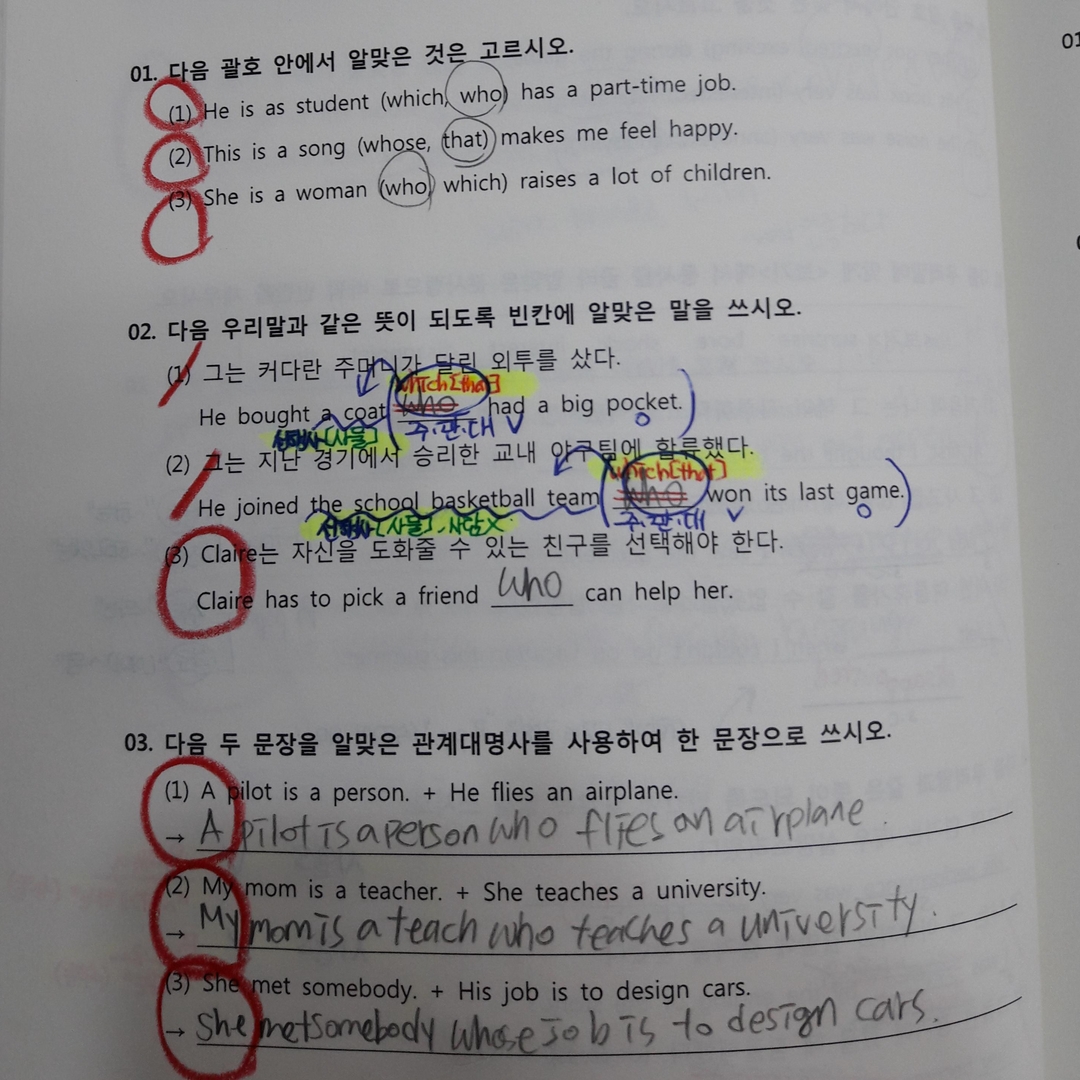 01. 다음 괄호 안에서 알맞은 것은 고르시오.
(1) He is as student (which, who) has a part-time job.
(2) This is a song (whose, that) makes me feel happy.
(3) She is a woman (who, which) raises a lot of children.
02. 다음 우리말과 같은 뜻이 되도록 빈칸에 알맞은 말을 쓰시오.
(1) 그는 커다란 주머니가 달린 외투를 샀다.
which[that]
He bought a coat who had a big pocket.
선행사[사물] 주·관·대 V
(2) 그는 지난 경기에서 승리한 교내 야구팀에 합류했다.
which[that]
He joined the school basketball team who won its last game.
선행사[사물]. 사람X 주·관·대 V
(3) Claire는 자신을 도화줄 수 있는 친구를 선택해야 한다.
Claire has to pick a friend who can help her.
03. 다음 두 문장을 알맞은 관계대명사를 사용하여 한 문장으로 쓰시오.
(1) A pilot is a person. + He flies an airplane.
→ A pilot is a person who flies an airplane.
(2) My mom is a teacher. + She teaches a university.
→ My mom is a teach who teaches a university.
(3) She met somebody. + His job is to design cars.
→ She met somebody whose job is to design cars.
01